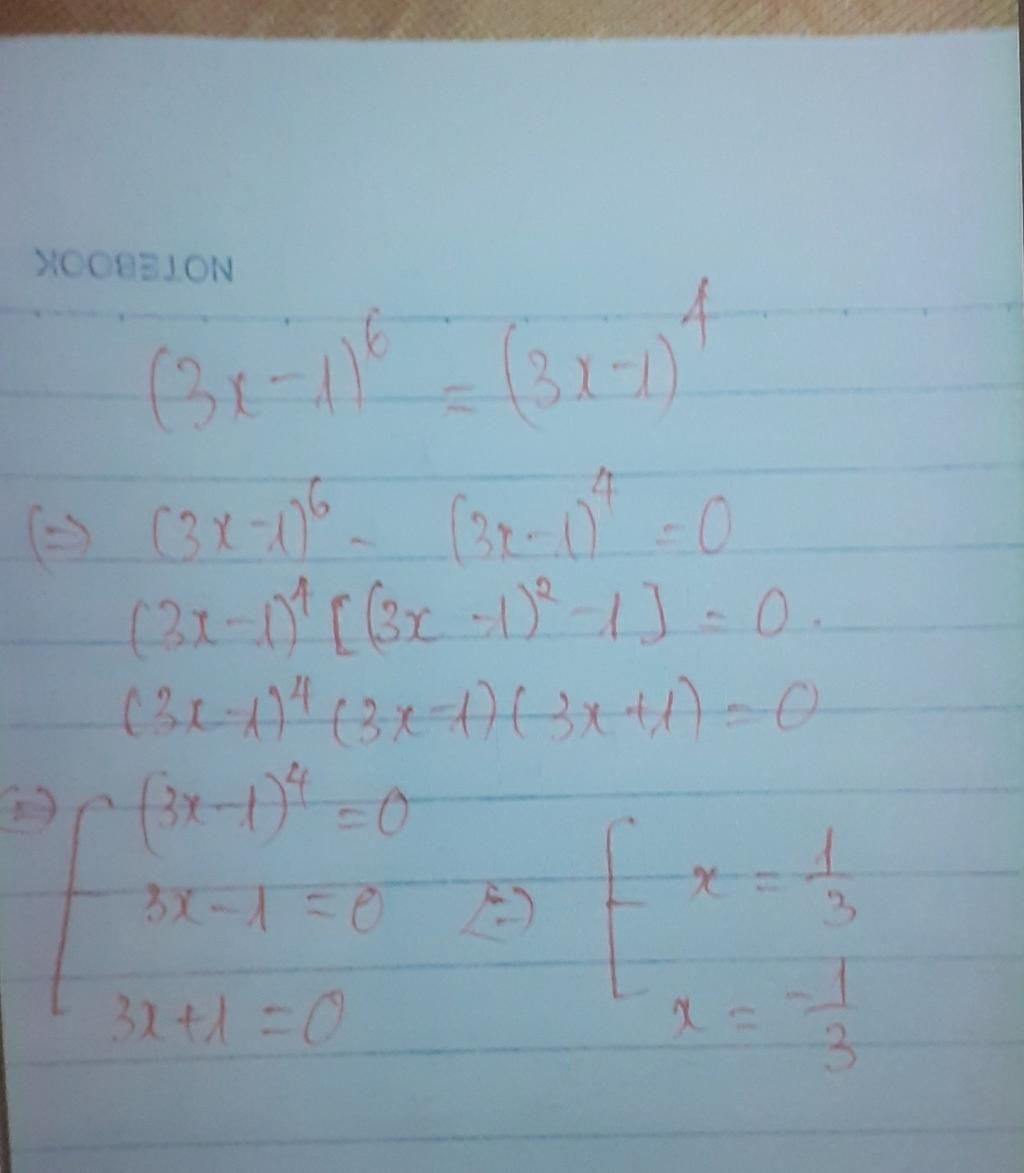 NOTEBOOK
(3x-1)⁶ = (3x-1)⁴
(=) (3x-1)⁶ - (3x-1)⁴ = 0
(3x-1)⁴ [(3x-1)² - 1] = 0.
(3x-1)⁴ (3x-1)(3x+1) = 0
(=) [ (3x-1)⁴ = 0
3x-1 = 0 (=) [ x = 1/3
3x+1 = 0 x = -1/3